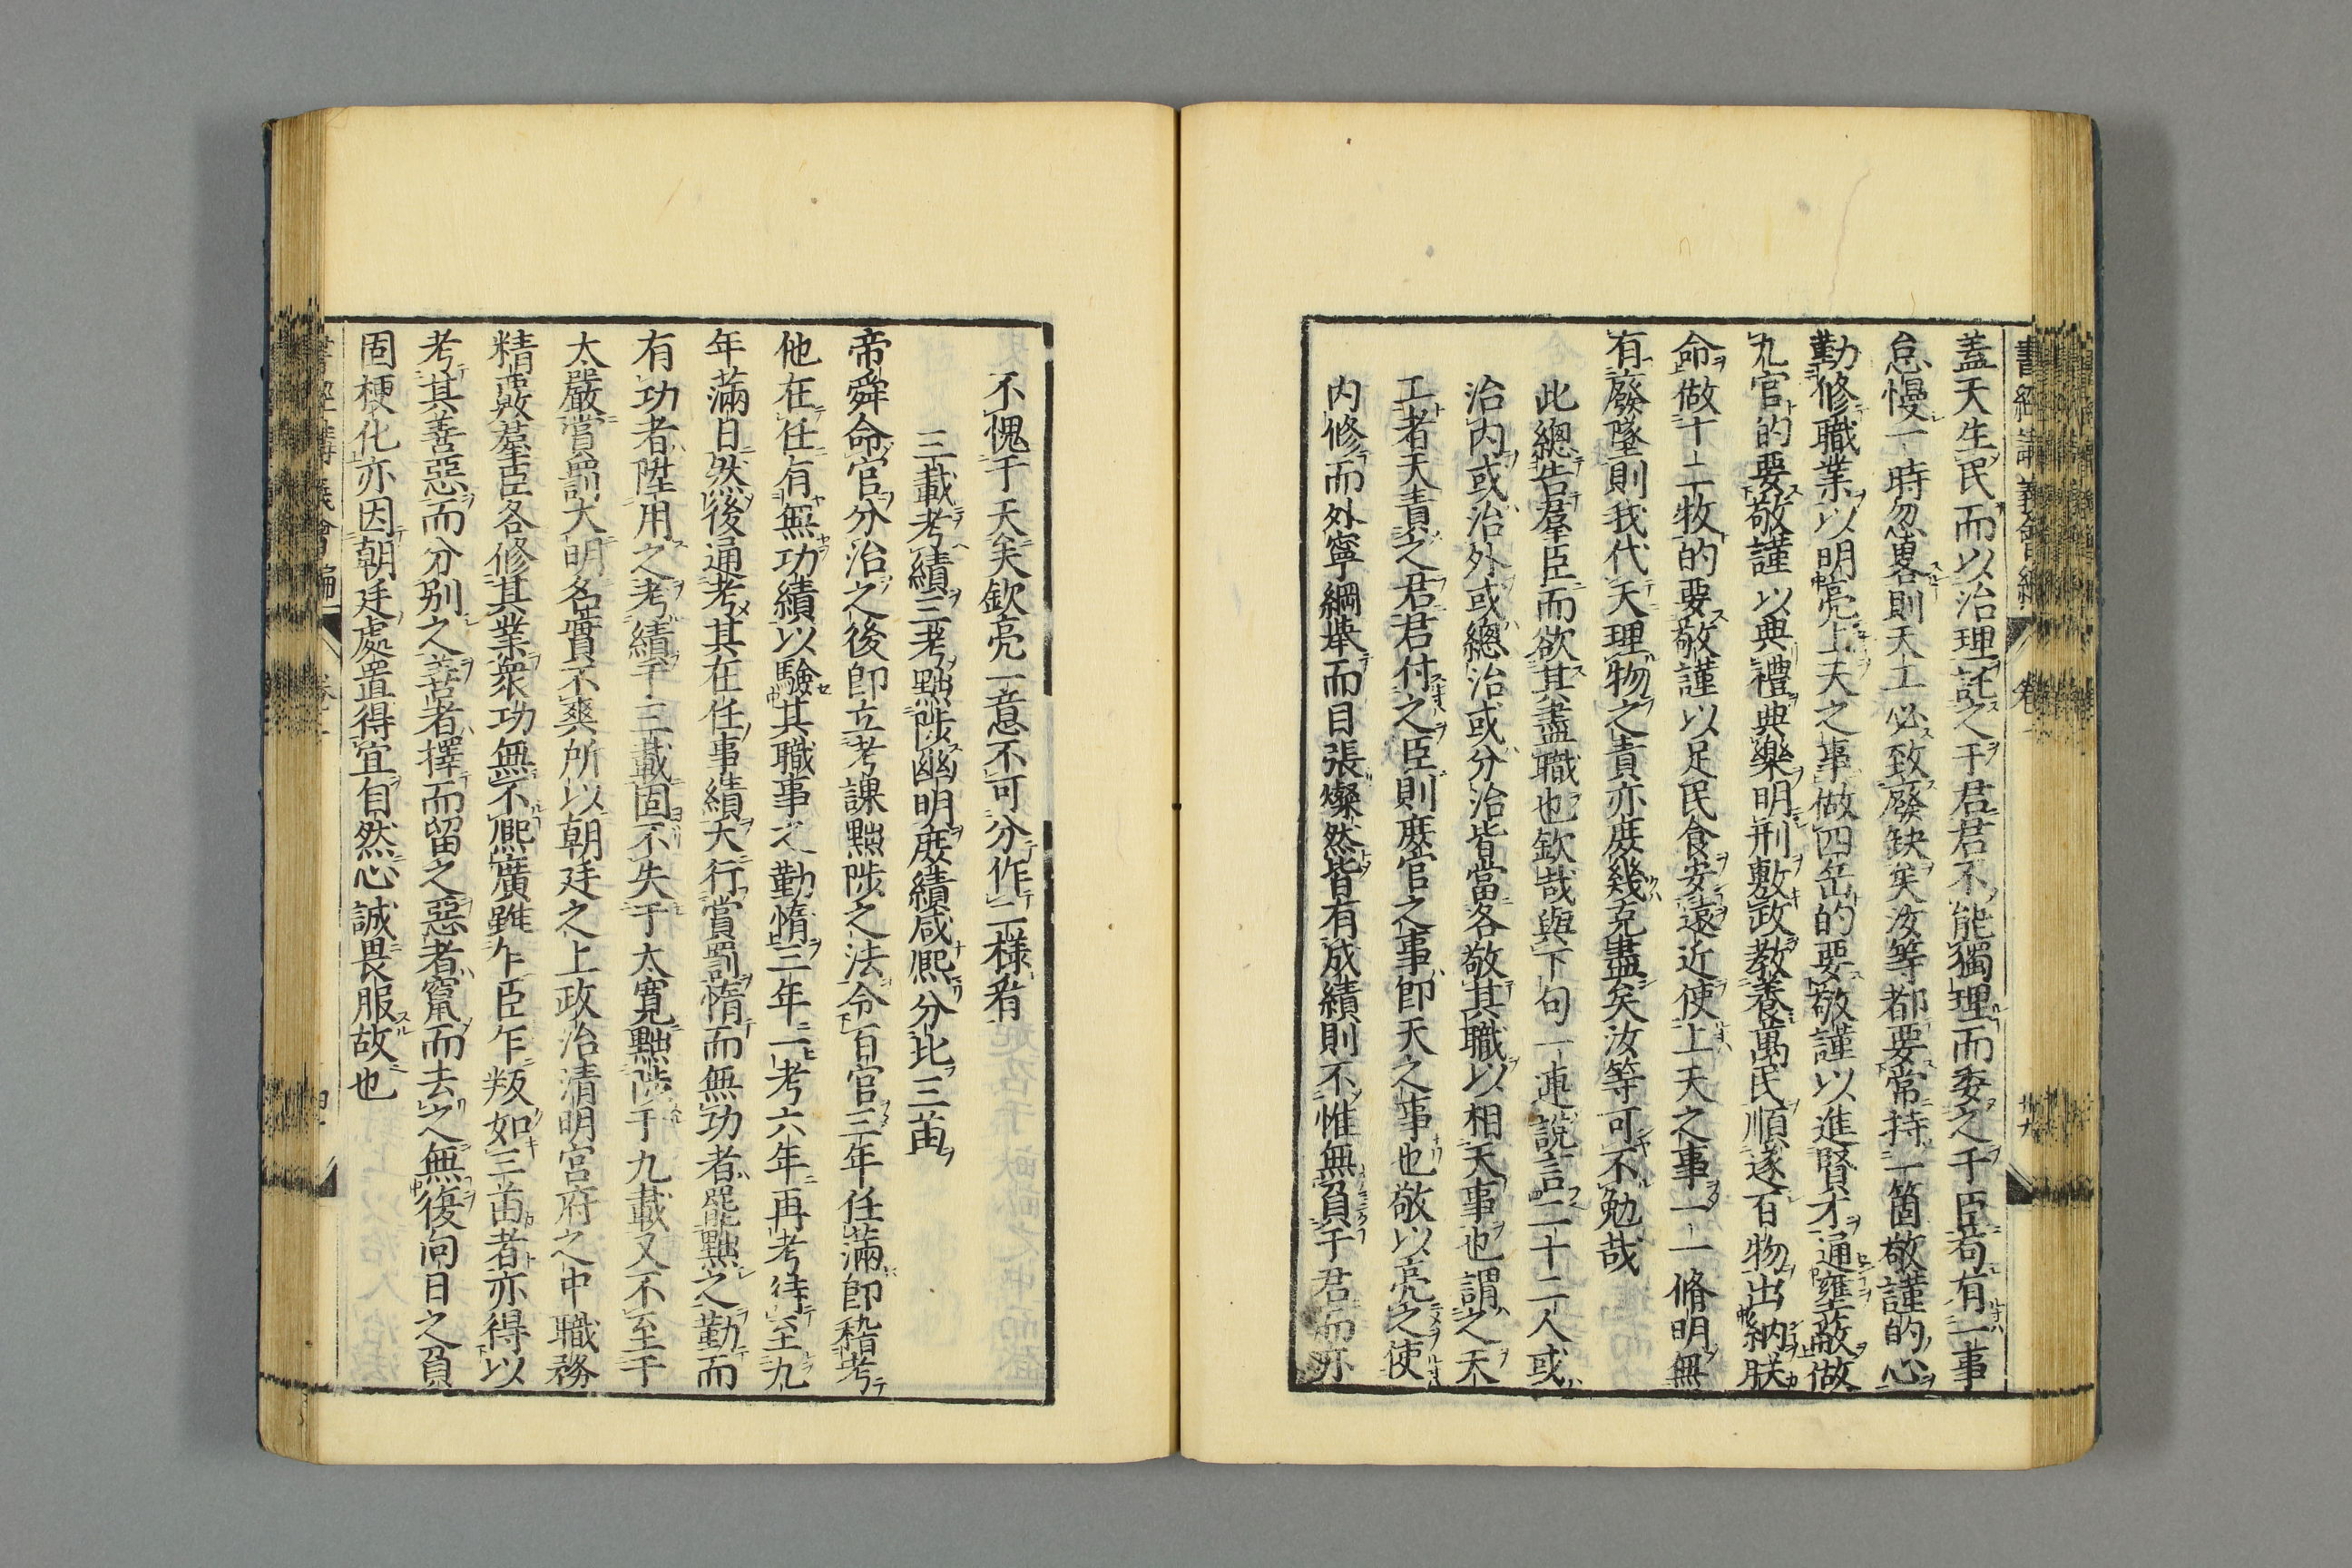 書經講義會編
卷一
廿九
蓋天生民而以治理託之于君君不能獨理而委之于臣苟有一事
怠慢一時忽畧則天工必致廢缺矣汝等都要常持一箇敬謹的心
勤修職業以明亮上天之事做四岳的要敬謹以進賢才通壅蔽做
九官的要敬謹以典禮典樂明刑敷政教養萬民順遂百物出納朕
命做十二牧的要敬謹以足民食安遠近使上天之事一一脩明無
有廢墜則我代天理物之責亦庶幾克盡矣汝等可不勉哉
此總告羣臣而欲其盡職也欽哉與下句一連說言二十二人或
治內或治外或總治或分治皆當各敬其職以相天事也謂之天
工者天責之君君付之臣則庶官之事即天之事也敬以亮之使
内修而外寧綱舉而目張燦然皆有成績則不惟無負于君而亦
不愧于天矣欽亮一意不可分作二樣看
三載考績三考黜陟幽明庶績咸熙分北三苗
帝舜命官分治之後卽立考課黜陟之法令百官三年任滿卽稽考
他在任有無功績以驗其職事之勤惰三年一考六年再考待至九
年滿日然後通考其在任事績大行賞罰惰而無功者罷黜之勤而
有功者陞用之考績于三載固不失于太寬黜陟于九載又不至于
太嚴賞罰大明名實不爽所以朝廷之上政治清明宮府之中職務
精覈羣臣各修其業衆功無不熙廣雖乍臣乍叛如三苗者亦得以
考其善惡而分別之善者擇而留之惡者竄而去之無復向日之負
固梗化亦因朝廷處置得宜自然心誠畏服故也
書經講義會編
卷一